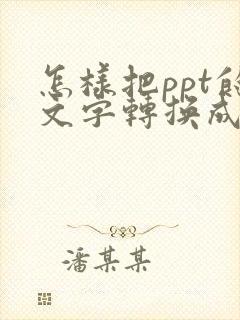 怎樣把ppt的
文字轉換成
潘某某